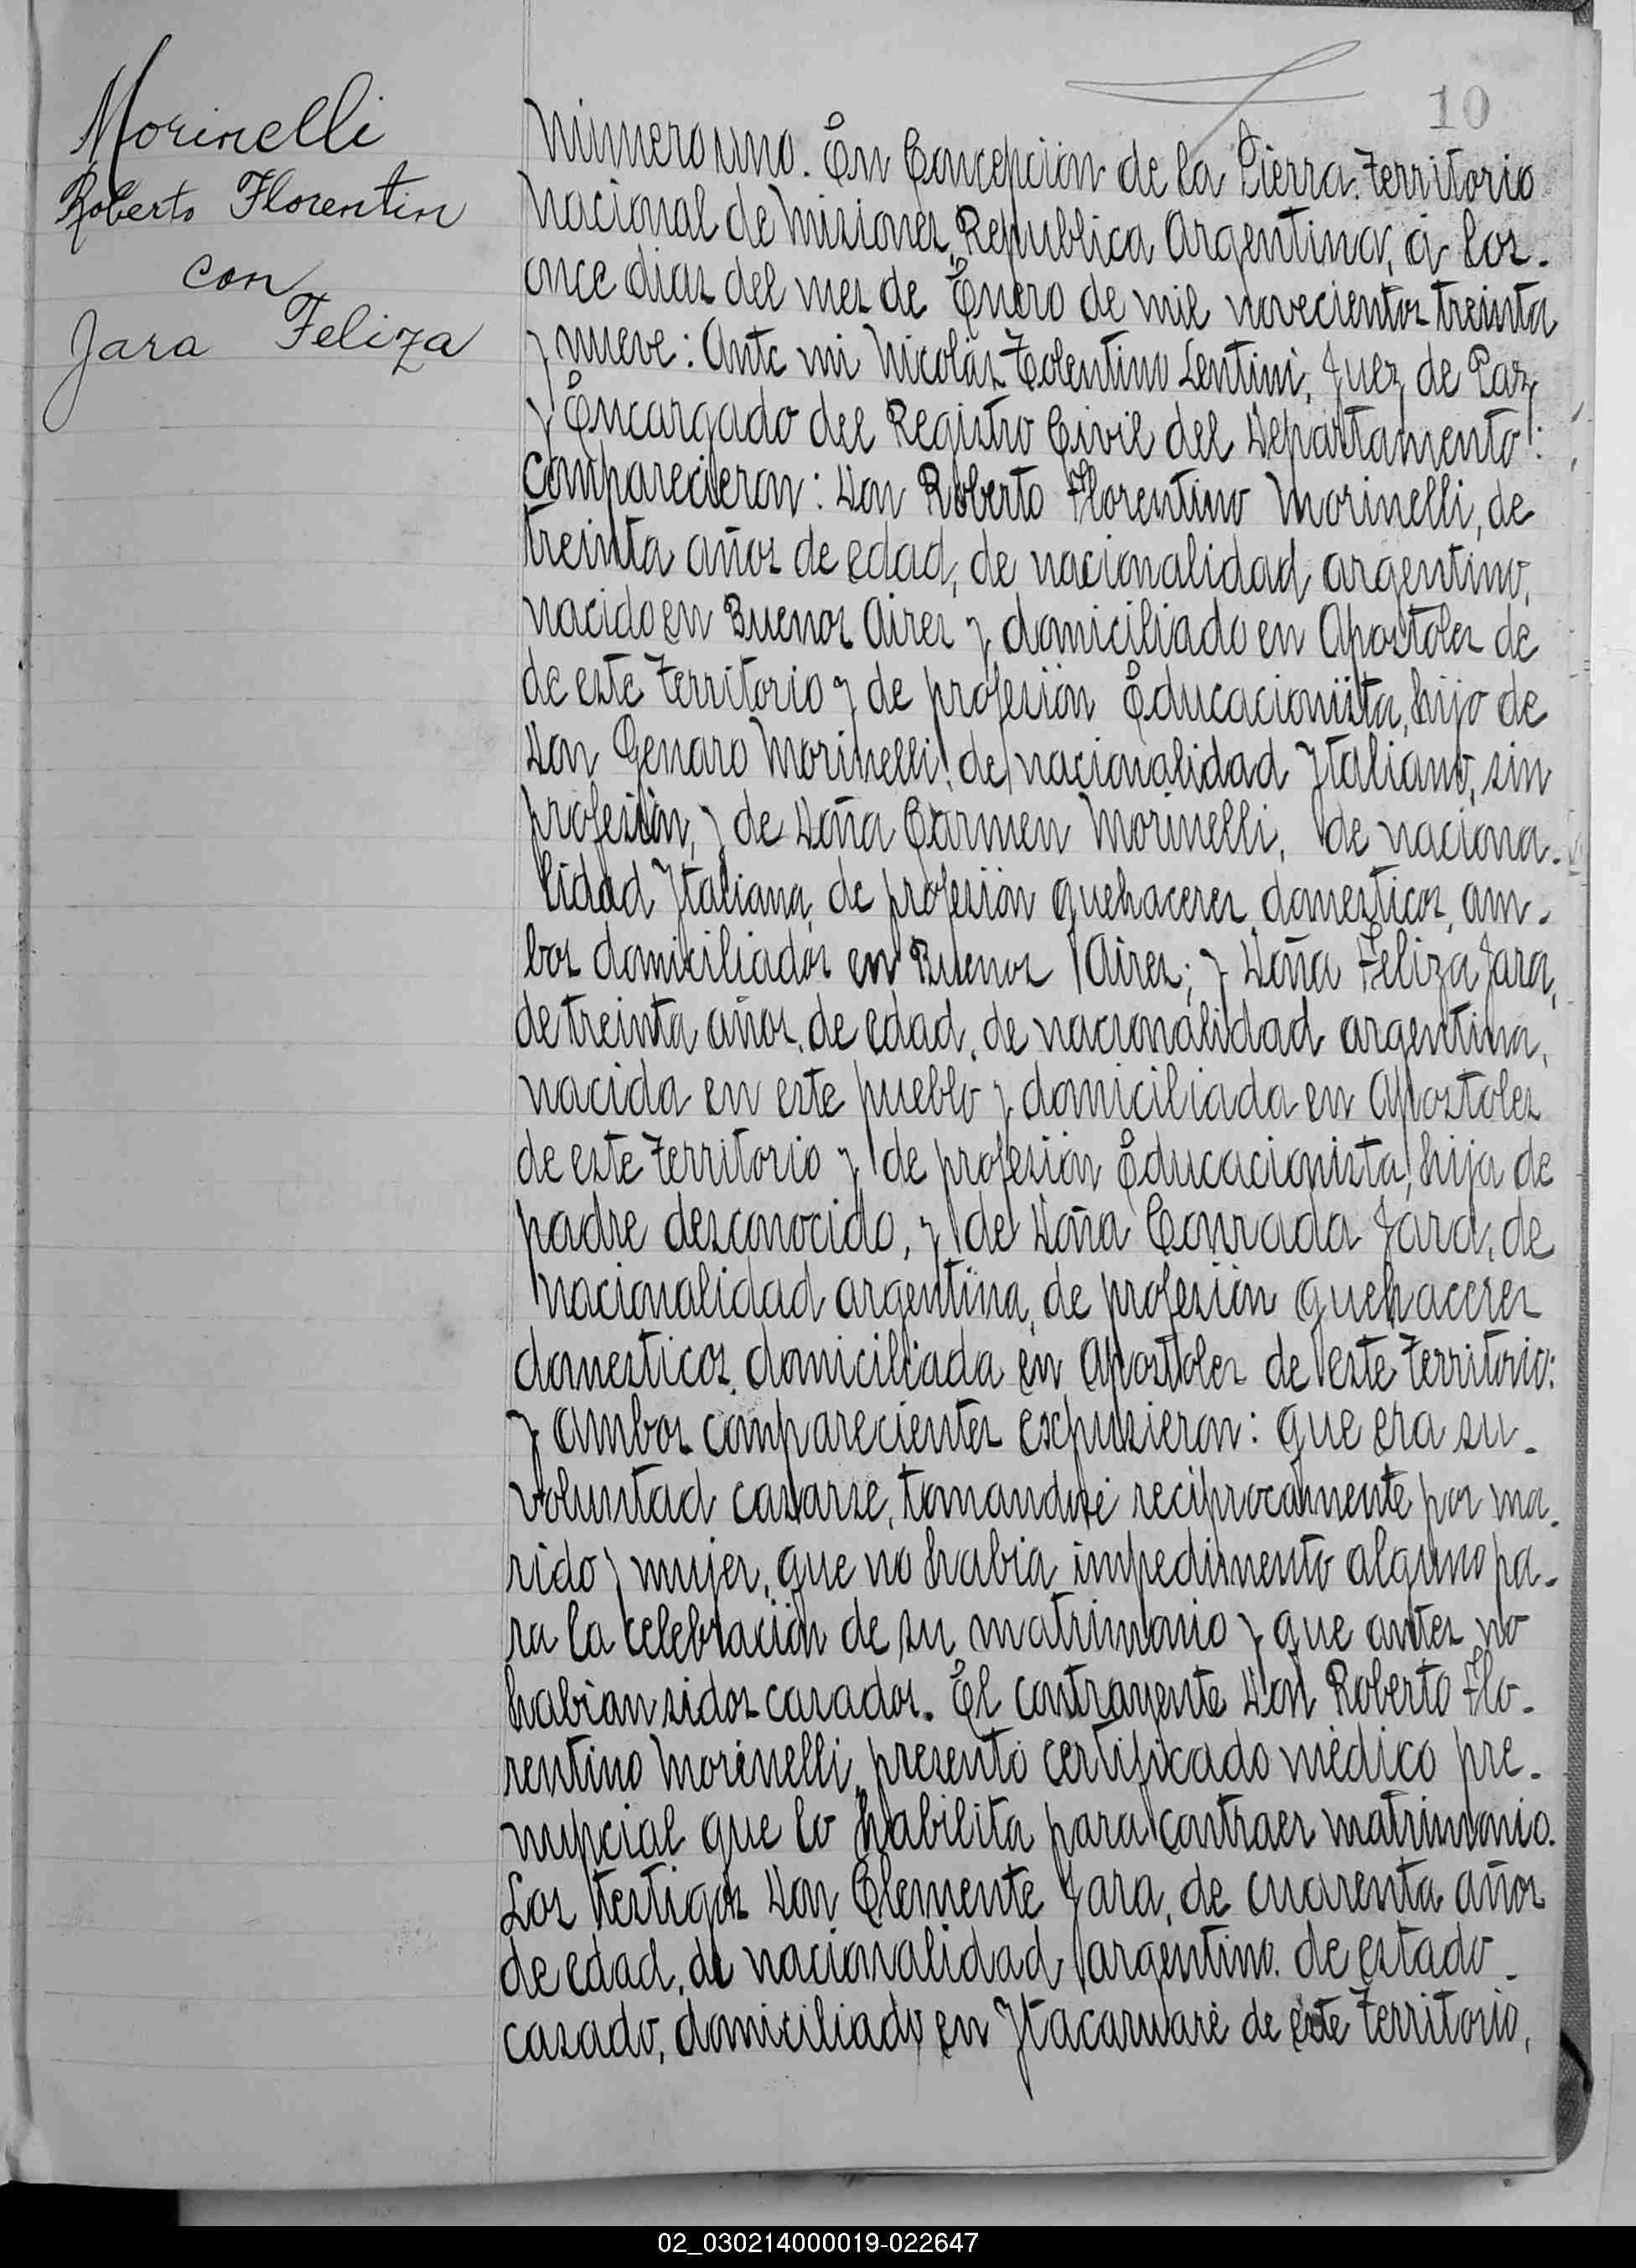 Morinelli
Roberto Florentin
con
Jara Feliza
10
Número uno. En Concepción de la Sierra, Territorio
Nacional de Misiones, Republica Argentina, á los.
once dias del mes de Enero de mil novecientos treinta
y nueve: Ante mi Nicolás Tolentino Lentini, Juez de Paz
y Encargado del Registro Civil del Departamento:
comparecieron: Don Roberto Florentino Morinelli, de
treinta años de edad, de nacionalidad argentino,
nacido en Buenos Aires y domiciliado en Apostoles de
de este Territorio y de profesión Educacionista, hijo de
Don Genaro Morinelli, de nacionalidad Italiano, sin
profesión, y de Doña Carmen Morinelli, de naciona-
lidad Italiana, de profesión quehaceres domesticos, am-
bos domiciliados en Buenos Aires; y Doña Feliza Jara,
de treinta años, de edad, de nacionalidad argentina,
nacida en este pueblo y domiciliada en Apostoles
de este Territorio y de profesión Educacionista, hija de
padre desconocido, y de Doña Conrada Jara, de
nacionalidad argentina, de profesión quehaceres
domesticos, domiciliada en Apostoles de este Territorio:
y ambos comparecientes expusieron: que era su-
voluntad casarse, tomandose reciprocamente por ma-
rido y mujer, que no habia impedimento alguno pa-
ra la celebración de su matrimonio y que antes no
habian sidos casados. El contrayente Don Roberto Flo-
rentino Morinelli, presentó certificado médico pre-
nupcial que lo habilita para contraer matrimonio.
Los testigos Don Clemente Jara, de cuarenta años
de edad, de nacionalidad argentino, de estado -
casado, domiciliado en Itacaruaré de este Territorio,
02_030214000019-022647